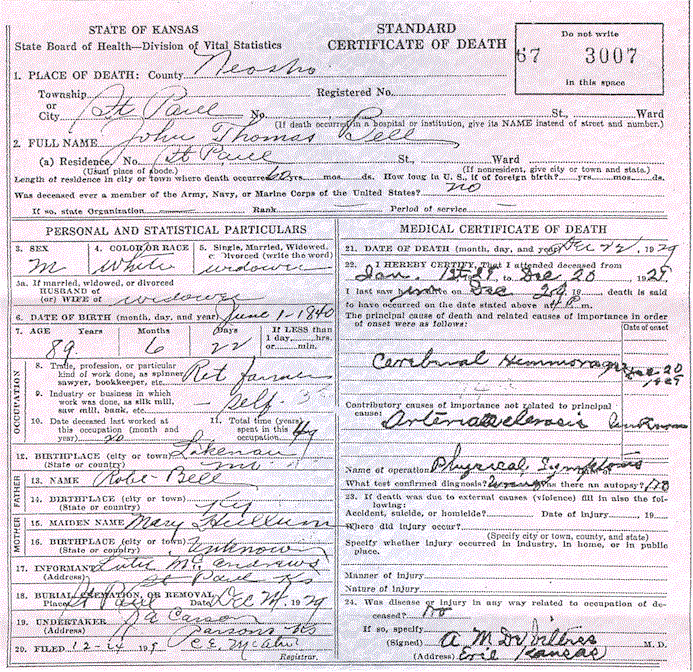 STATE OF KANSAS
State Board of Health—Division of Vital Statistics
STANDARD
CERTIFICATE OF DEATH
Do not write
67 3007
in this space
1. PLACE OF DEATH: County Neosho
Township Registered No.
or
City St Paul No. St., Ward
(If death occurred in a hospital or institution, give its NAME instead of street and number.)
2. FULL NAME John Thomas Bell
(a) Residence, No. St Paul St., Ward
(Usual place of abode.) (If nonresident, give city or town and state.)
Length of residence in city or town where death occurred 60 yrs. mos. ds. How long in U. S., if of foreign birth? yrs. mos. ds.
Was deceased ever a member of the Army, Navy, or Marine Corps of the United States? no
If so, state Organization Rank Period of service
PERSONAL AND STATISTICAL PARTICULARS
3. SEX 4. COLOR OR RACE 5. Single, Married, Widowed,
or Divorced (write the word)
M White widower
5a. If married, widowed, or divorced
HUSBAND of
(or) WIFE of widower
6. DATE OF BIRTH (month, day, and year) June 1-1840
7. AGE Years Months Days If LESS than
1 day, hrs.
or min.
89 6 22
OCCUPATION
8. Trade, profession, or particular
kind of work done, as spinner,
sawyer, bookkeeper, etc. Ret farmer
9. Industry or business in which
work was done, as silk mill,
saw mill, bank, etc. Self
10. Date deceased last worked at
this occupation (month and
year)
11. Total time (years)
spent in this
occupation
12. BIRTHPLACE (city or town)
(State or country) Mo
FATHER
13. NAME Robt Bell
14. BIRTHPLACE (city or town)
(State or country) Ky
MOTHER
15. MAIDEN NAME Mary Hullum
16. BIRTHPLACE (city or town)
(State or country) Unknown
17. INFORMANT McAndrews
(Address) St Paul Ks
18. BURIAL, CREMATION, OR REMOVAL
Place St Paul Date Dec 24, 1929
19. UNDERTAKER Carson
(Address) Parsons Ks
20. FILED 12-24 19 C.E. Registrar.
MEDICAL CERTIFICATE OF DEATH
21. DATE OF DEATH (month, day, and year) Dec 22, 1929
22. I HEREBY CERTIFY, That I attended deceased from
Jan. 1st to Dec 20, 1929.
I last saw alive on Dec 20, 19 death is said
to have occurred on the date stated above at 4 P m.
The principal cause of death and related causes of importance in order
of onset were as follows:
Date of onset
Cerebral Hemmorage Dec-20
1929
Contributory causes of importance not related to principal
cause:
Arteriosclerosis Unknown
Name of operation Physical Symptoms
What test confirmed diagnosis? Was there an autopsy? no
23. If death was due to external causes (violence) fill in also the fol-
lowing:
Accident, suicide, or homicide? Date of injury 19
Where did injury occur?
(Specify city or town, county, and state)
Specify whether injury occurred in industry, in home, or in public
place.
Manner of injury
Nature of injury
24. Was disease or injury in any way related to occupation of de-
ceased? no
If so, specify
(Signed) A. M. M. D.
(Address) Erie Kansas